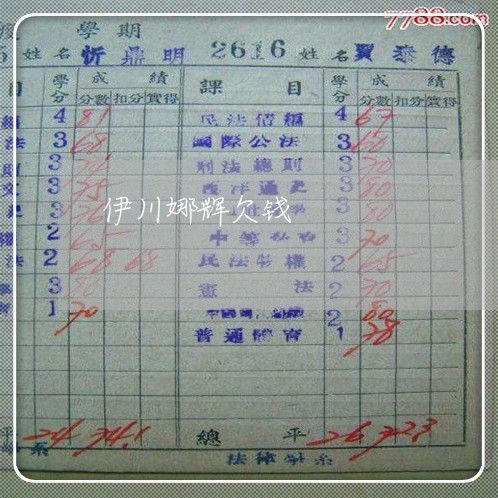 7788.com
學期
姓名 忻鼎明 2616 姓名 賈泰德
目 學分 成績 課目 學分 成績
分數 扣分 實得 分數 扣分 實得
4 81 民法債編 4 67
法 3 68 國際公法 3 60
3 刑法總則 3 70
3 75 西洋通史 3 80
3 3 80
伊川娜輝欠钱
2 65 3 70
法 2 68 68 民法物權 2 65
3 80 憲法 2 70
1 70 2 80
普通體育 1 78
平 24 74.1 總平 26 72.3
系 法律學系